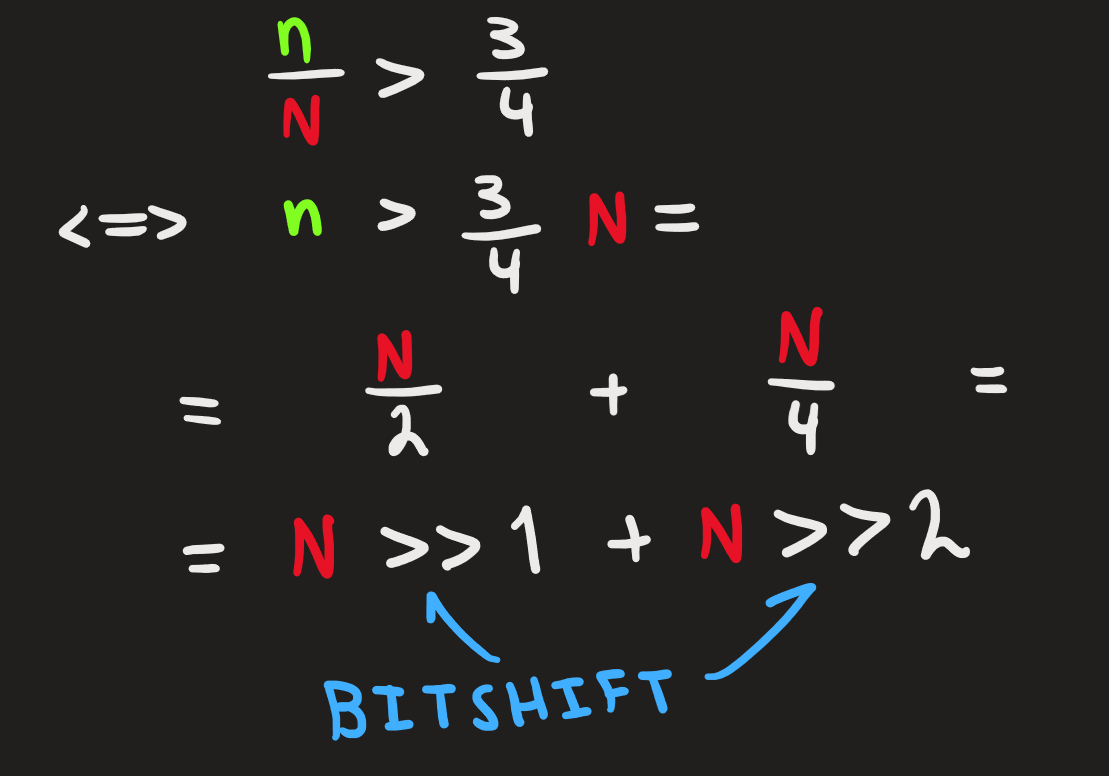 n/N > 3/4
<=> n > 3/4 N =
= N/2 + N/4 =
= N >> 1 + N >> 2
BITSHIFT